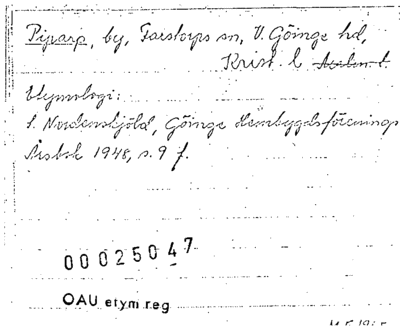 Piparp, by, Farstorps sn, V. Göinge hd,
Krist. l
Etymologi:
S. Nordenskjöld, Göinge Hembygdsförenings
Årsbok 1948, s. 9 f.
00025047
OAU etym reg